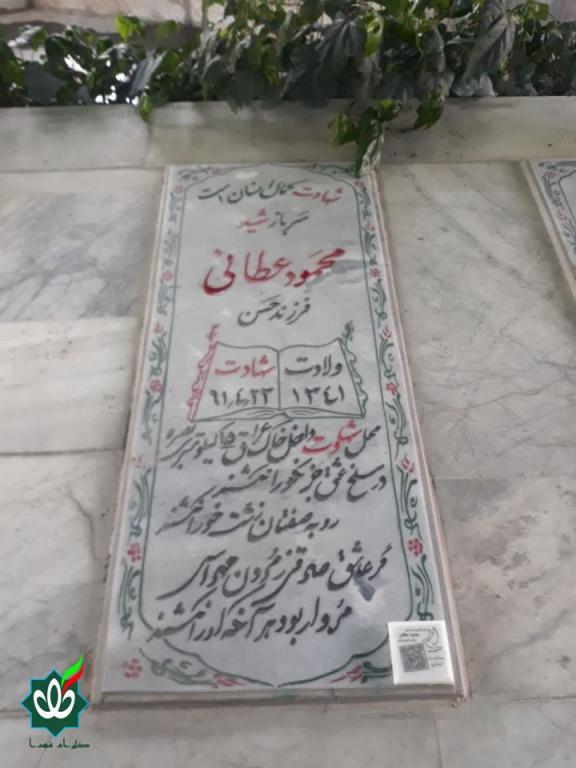 شهادت کمال انسان است
سرباز شهید
محمود عطائی
فرزند حسن
ولادت شهادت
۱۳۴۱ ۶۱٫۴٫۲۳
محل شهادت داخل خاک عراق کیلومتر بصره
در مسلخ عشق جز نکو را نکشند
روبه صفتان زشت خو را نکشند
گر عاشق صادقی ز مردن مهراس
مردار بود هر آنکه او را نکشند